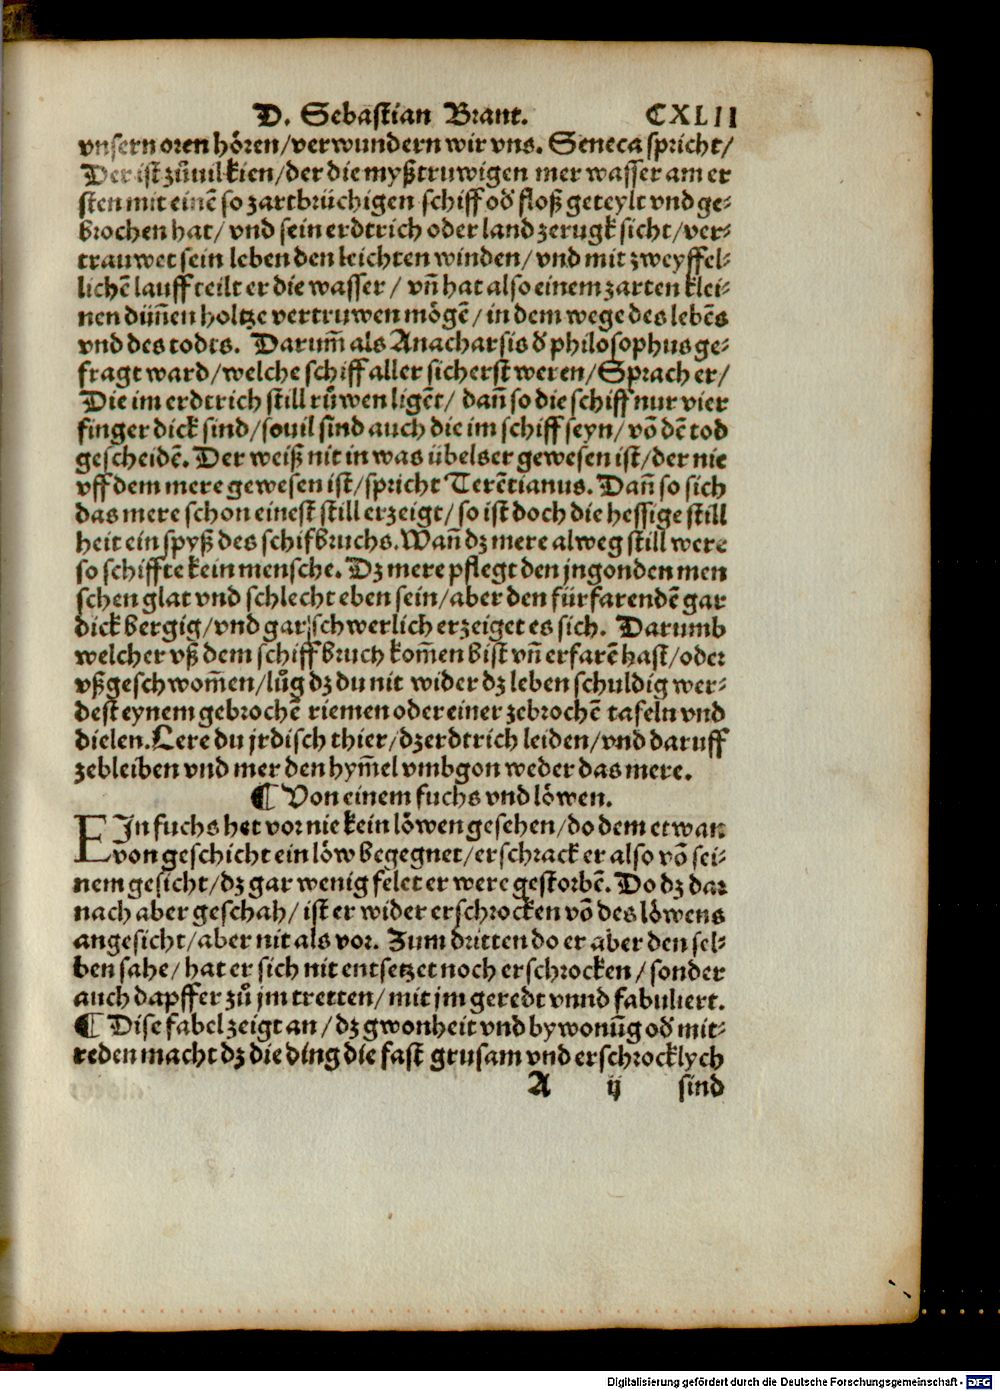 D. Sebastian Brant. CXLII
vnsern oren hören/verwundern wir vns. Seneca spricht/
Der ist zůuil kien/der die myßtruwigen mer wasser am er
sten mit einē so zartbrüchigen schiff od̄ floß geteylt vnd ge-
brochen hat/ vnd sein erdtrich oder land zerugk sicht/ver-
trauwet sein leben den leichten winden/ vnd mit zweyffel-
lichē lauff teilt er die wasser / vn̄ hat also einem zarten klei-
nen dün̄en holtze vertruwen mögē/ in dem wege des lebēs
vnd des todes. Darum̄ als Anacharsis d̄ philosophus ge-
fragt ward/welche schiff aller sicherst weren/Sprach er/
Die im erdtrich still růwen ligēt/ dan̄ so die schiff nur vier
finger dick sind/souil sind auch die im schiff seyn/ vō dē tod
gescheidē. Der weiß nit in was übels er gewesen ist/der nie
vff dem mere gewesen ist/spricht Terētianus. Dan̄ so sich
das mere schon einest still erzeigt/ so ist doch die hessige still
heit ein spyß des schifbruchs. Wan̄ dz mere alweg still were
so schiffte kein mensche. Dz mere pflegt den jngonden men
schen glat vnd schlecht eben sein/aber den fürfarendē gar
dick bergig/vnd gar schwerlich erzeiget es sich. Darumb
welcher vß dem schiffbruch kom̄en bist vn̄ erfarē hast/oder
vßgeschwom̄en/lůg dz du nit wider dz leben schuldig wer-
dest eynem gebrochē riemen oder einer zebrochē tafeln vnd
dielen. Lere du jrdisch thier/dz erdtrich leiden/vnd daruff
zebleiben vnd mer den hym̄el vmbgon weder das mere.
¶ Von einem fuchs vnd löwen.
EIn fuchs het vor nie kein löwen gesehen/do dem etwan
von geschicht ein löw begegnet/erschrack er also vō sei-
nem gesicht/dz gar wenig felet er were gestorbē. Do dz dar
nach aber geschah/ ist er wider erschrocken vō des löwens
angesicht/aber nit als vor. Zum dritten do er aber den sel-
ben sahe/ hat er sich nit entsetzet noch erschrocken/sonder
auch dapffer zů jm tretten/ mit jm geredt vnnd fabuliert.
¶ Dise fabel zeigt an/dz gwonheit vnd bywonūg od̄ mit-
reden macht dz die ding die fast grusam vnd erschrocklych
A ij sind
Digitalisierung gefördert durch die Deutsche Forschungsgemeinschaft - DFG